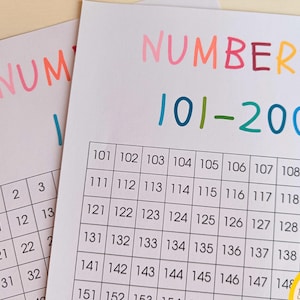 NUM
1
2 3
12 13
21 22 23
31 32
NUMBER
101-200
101 102 103 104 105 106 107 108
111 112 113 114 115 116 117 118
121 122 123 124 125 126 127 128
131 132 133 134 135 136 137 138
141 142 143 144 145 146 147 148
151 152 153 154 155 156 157